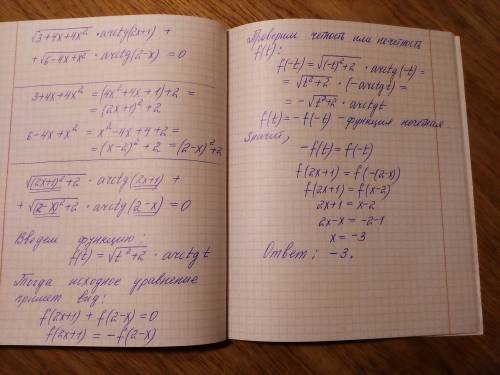 √3+4x+4x² · arctg(2x+1) +
+√6-4x+x² · arctg(2-x) = 0
3+4x+4x² = (4x²+4x+1)+2 =
= (2x+1)²+2
6-4x+x² = x²-4x+4+2 =
= (x-2)²+2 = (2-x)²+2
√(2x+1)²+2 · arctg(2x+1) +
+ √(2-x)²+2 · arctg(2-x) = 0
Введем функцию:
f(t) = √t²+2 · arctg t
Тогда исходное уравнение
примет вид:
f(2x+1) + f(2-x) = 0
f(2x+1) = -f(2-x)
Проверим четность или нечетность
f(t):
f(-t) = √(-t)²+2 · arctg(-t) =
= √t²+2 · (-arctgt) =
= -√t²+2 · arctgt
f(t) = -f(-t) - функция нечетная
Значит,
-f(t) = f(-t)
f(2x+1) = f(-(2-x))
f(2x+1) = f(x-2)
2x+1 = x-2
2x-x = -2-1
x = -3
Ответ: -3.